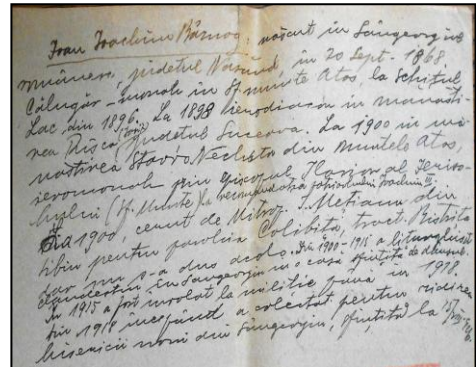 Ioan Ioachim Bâznog, născut în Sângeorgiul
, județul Năsăud, în 20 Sept. 1868.
Călugăr – monah în Sf. munte Atos la Schitul
Lac din 1896. La 1898 ierodiacon în mănăsti-
rea Rîsca, județul Suceava. La 1900 în mă-
năstirea Stavro Nechita din Muntele Atos,
ieromonah prin episcopul Ilarion al Ieriso-
(Sf. Munte) la recomandația patriarhului Ioachim III.
1900, cerut de Mitrop. I. Mețianu din
Sibiu pentru parohia Colibița, tract. Bistrița
dar nu s-a dus acolo. Din 1900-1915 a liturghisit
clandestin în Sângeorgiu în o casă sfințită de dânsul.
În 1915 a fost înrolat la miliție până în 1918.
Din 1918 începând a colectat pentru zidirea
bisericii noui din Sângeorgiu, sfințită la